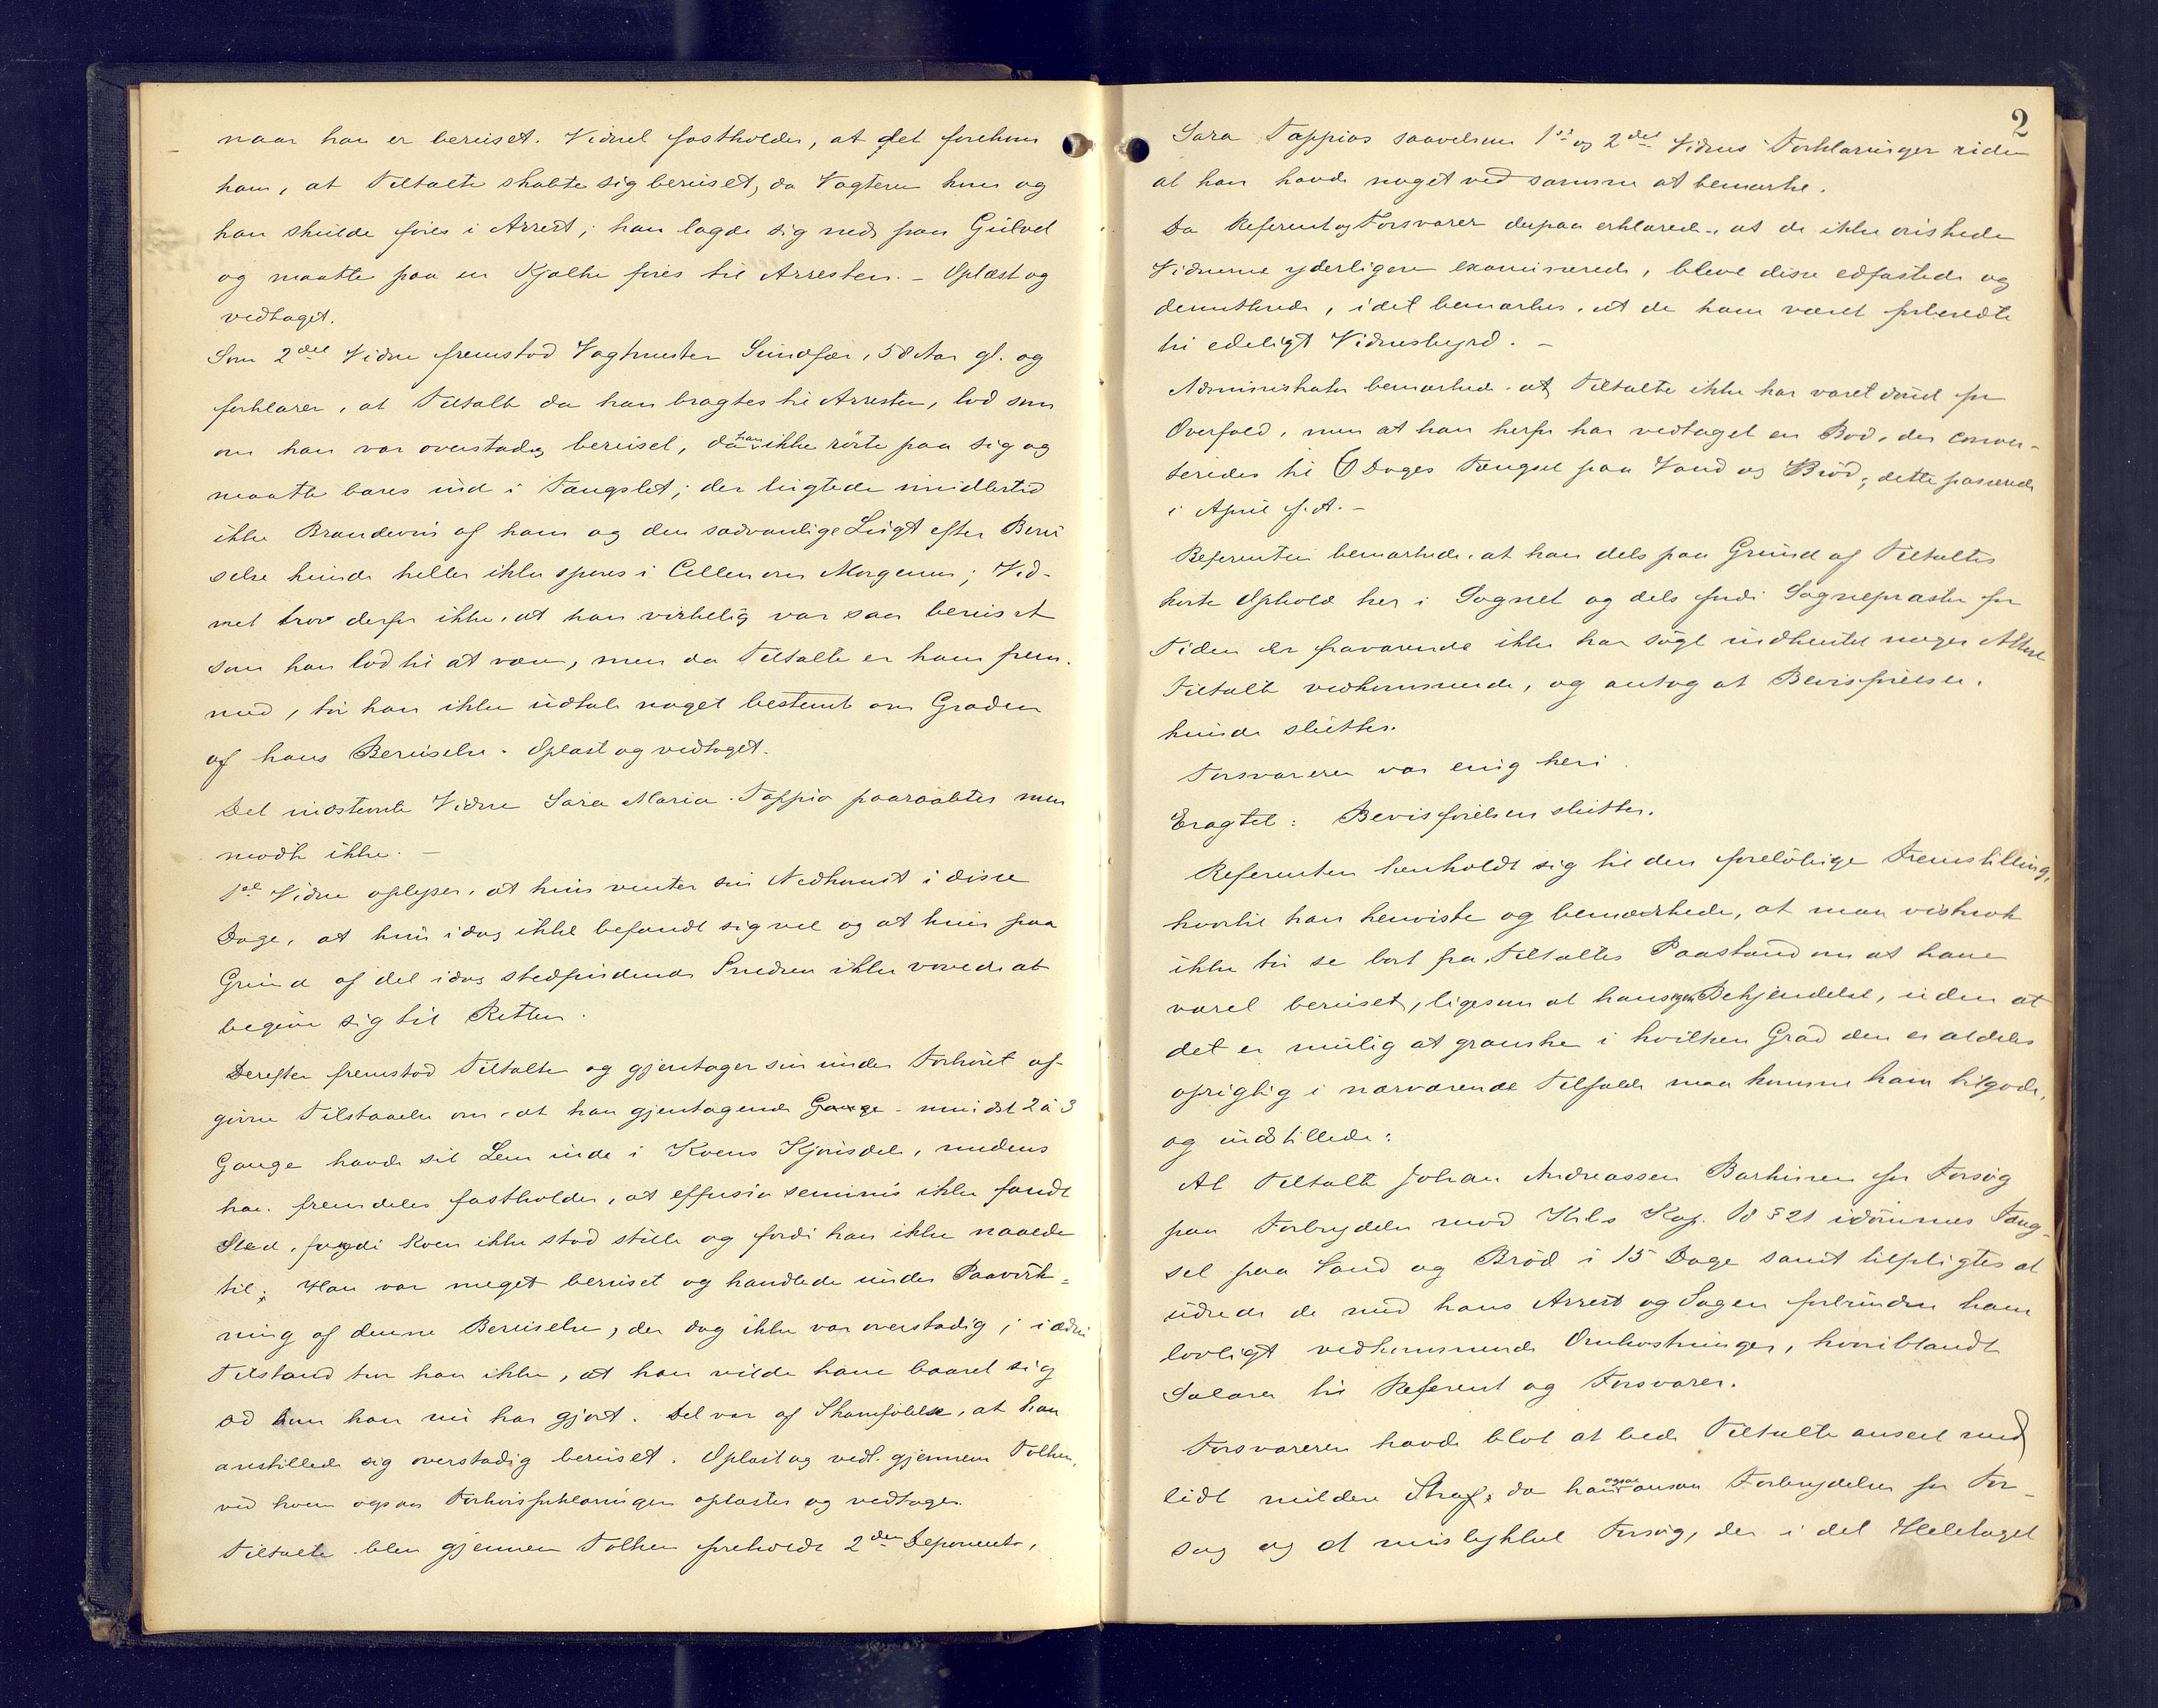 naar han er beruset. Vidnet fastholder, at det forekom
ham, at Tiltalte skabte sig beruset, da Vagteren kom og
han skulde føres i Arrest; han lagde sig ned paa Gulvet
og maatte paa en Kjælke føres til Arresten. – Oplæst og
vedtaget.
Som 2det Vidne fremstod Vagtmester Sundfær, 58 Aar gl. og
forklarer, at Tiltalte da han bragtes til Arresten, lod som
om han var overstadig beruset, da han ikke rørte paa sig og
maatte bæres ind i Fængslet; der lugtede imidlertid
ikke Brændevin af ham og den sædvanlige Lugt efter Beru
selse kunde heller ikke spores i Cellen om Morgenen; Vid-
net tror derfor ikke, at han virkelig var saa beruset
som han lod til at være, men da Tiltalte er ham frem-
med, tør han ikke udtale noget bestemt om Graden
af hans Beruselse. Oplæst og vedtaget.
Det indstevnte Vidne Sara Maria Tappio paaraabtes men
mødte ikke. –
1ste Vidne oplyser, at hun venter sin Nedkomst i disse
Dage, at hun idag ikke befandt sig vel og at hun paa
Grund af det idag stedfindende Snedrev ikke vovede at
begive sig til Retten.
Derefter fremstod Tiltalte og gjentager sin under Forhøret af-
givne Tilstaaelse om, at han gjentagende Gange – mindst 2 à 3
Gange havde sit Lem inde i Koens Kjønsdele, medens
han fremdeles fastholder, at effusio seminis ikke fandt
Sted, fordi Koen ikke stod stille og fordi han ikke naaede
til; Han var meget beruset og handlede under Paavirk-
ning af denne Beruselse, der dog ikke var overstadig; i ædru
Tilstand tror han ikke, at han vilde have baaret sig
ad som han nu har gjort. Det var af Skamfølelse, at han
anstillede sig overstadig beruset. Oplæst og vedt. gjennem Tolken,
ved hvem ogsaa Forhørsforklaringen oplæstes og vedtoges.
Tiltalte blev gjennem Tolken foreholdt 2den Deponents,
2
Sara Tappios saavelsom 1ste og 2det Vidnes Forklaringer uden
at han havde noget ved samme at bemærke.
Da Referent og Forsvarer derpaa erklærede, at de ikke ønskede
Vidnerne yderligere examinerede, bleve disse edfæstede og
demitterede, idet bemærkes, at de have været forberedte
til edeligt Vidnesbyrd. –
Administrator bemærkede, at Tiltalte ikke har været dømt for
Overfald, men at han herfor har vedtaget en Bod, der conver-
teredes til 6 Dages Fængsel paa Vand og Brød; dette passerede
i April f. A. –
Referenten bemærkede, at han dels paa Grund af Tiltaltes
korte Ophold her i Sognet og dels fordi Sognepræsten for
Tiden er fraværende ikke har søgt indhentet nogen Attest
Tiltalte vedkommende, og antog at Bevisførelsen
kunde sluttes.
Forsvareren var enig heri.
Eragtet: Bevisførelsen sluttes.
Referenten henholdt sig til den foreløbige Fremstilling,
hvortil han henviste og bemærkede, at man vistnok
ikke tør se bort fra Tiltaltes Paastand om at have
været beruset, ligesom at hans egen Bekjendelse, uden at
det er mulig at granske i hvilken Grad den er aldeles
oprigtig i nærværende Tilfælde maa komme ham tilgode,
og indstillede:
At Tiltalte Johan Andreassen Barkinen for Forsøg
paa Forbrydelse mod Krls Kap. 18 § 21 idømmes Fæng-
sel paa Vand og Brød i 15 Dage samt tilpligtes at
udrede de med hans Arrest og Sagen forbundne ham
lovligt vedkommende Omkostninger, hvoriblandt
Salarer til Referent og Forsvarer.
Forsvareren havde blot at bede Tiltalte anseet med
lidt mildere Straf, da han ogsaa ansaa Forbrydelsen for For-
søg og et mislykket Forsøg, der i det Heletaget